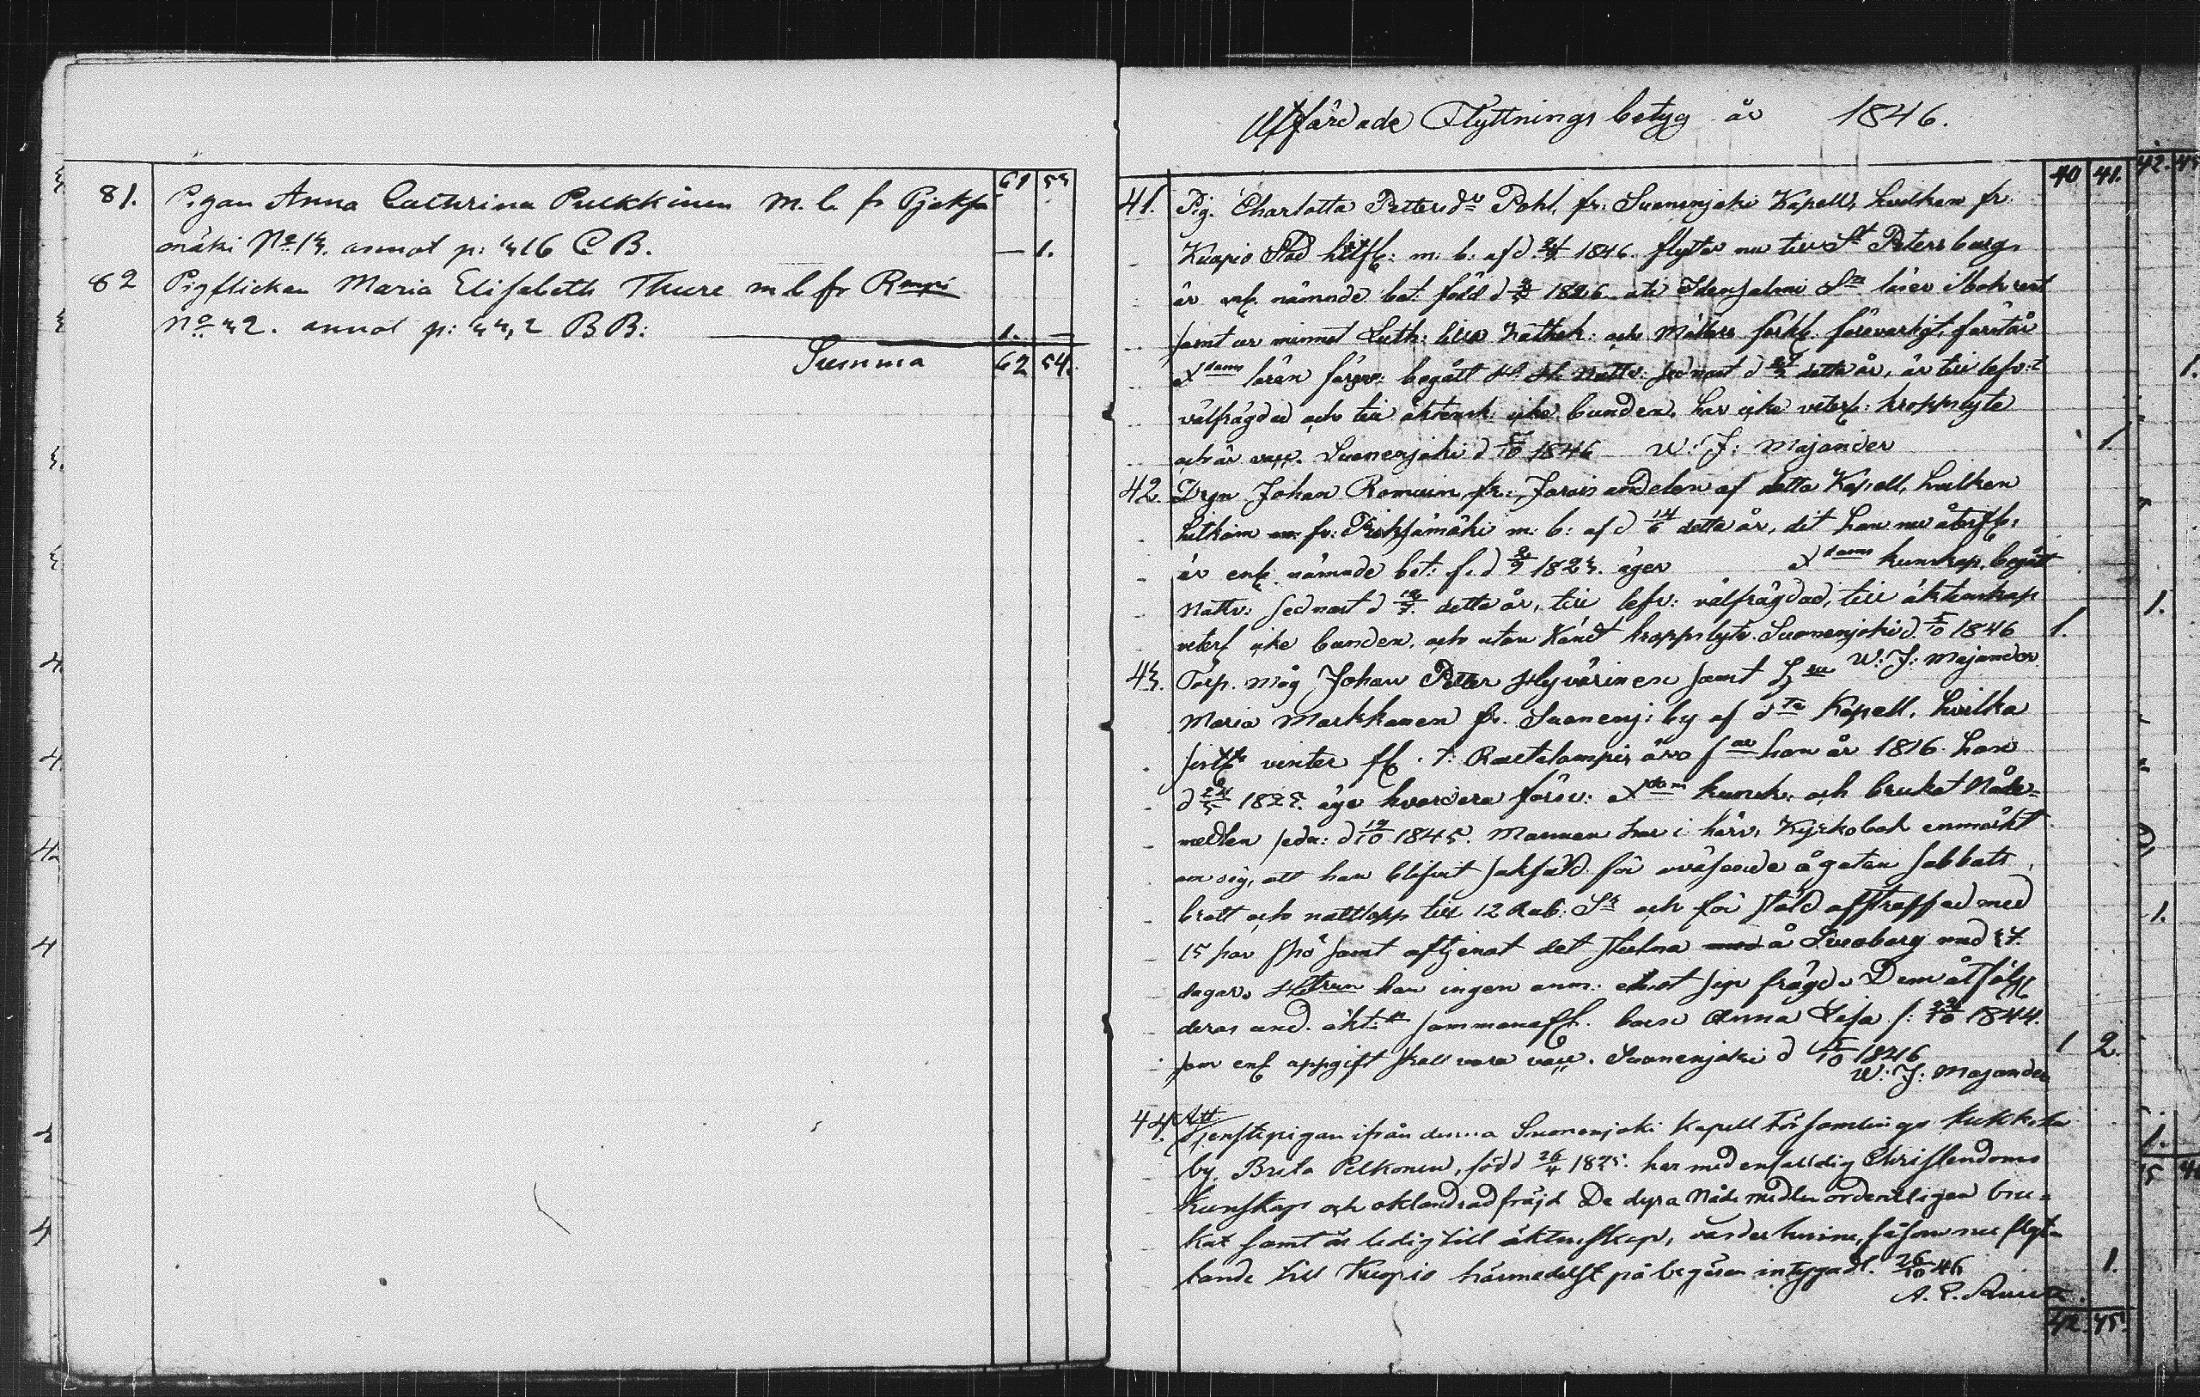 61 53
81. Pigan Anna Cathrina Pulkkinen m. b. fr Pjeksä
mäki No 13. annot p: 316 C B. — 1.
82 Pigflickan Maria Elisabeth Thure m b fr
No 32. annot p: 332 B B: 1. —
Summa 62 54.
Utfärdade Flyttnings betyg år 1846.
40 41.
41. Pig. Charlotta Pettersdr Pohl, fr. Suonenjoki Kapell, hvilken fr.
Kuopio Stad m: b: af d. 1846. flyttar nu till St Petersburg,
är enl. nämnde bet. född d 1826 uti Idensalmi Sn läser i bok rent
samt ur minnet Luth: lilla Kathek: och förkl. försvarligt, förstår
Xdoms läran begått H. H. Nattv: sednast d detta år, är till lefv:t
välfrägdad och till äktensk: icke bunden, har icke veterl: kroppslyte
och är vacc. Suonenjoki d 5/10 1846 W: J: Majander 1.
42. Drgn Johan Romuin fr. andelen af detta Kapell, hvilken
hitkom fr: Pieksämäki m: b: af d 14/6 detta år, dit han nu återfl:
är enl. nämnde bet: f. d 1823. äger Xdoms kunskap, begått
Nattv: sednast d detta år, till lefv: välfrägdad, till äktenskap
veterl icke bunden, och utan känt kroppslyte. Suonenjoki d. 5/10 1846 1.
W: J: Majander
43. Torp. måg Johan Petter Hyvärinen samt
Maria Markkanen fr. Suonenj: by af dta Kapell, hvilka
vinter fl. t: Rautalampi, äro f han år 1816 hon
d 24/5 182 äga hvardera försv: Xdoms kunsk: och brukat Nåde=
medlen sedn: d 19/10 1845. Mannen har i härv: Kyrkobok anmärkt
om sig, att han blifvit sakfäld för oväsende å gatan sabbats
brott och nattlopp till 12 Rub: Sr och för stöld afstraffad med
15 par spö samt aftjenat det stulna å Sveaborg med 37.
dagar. Hustrun har ingen anm: emot sin frägd. Dem åtfölj
deras und. äkt: sammanafl. barn Anna Lisa f: 22/10 1844.
som enl uppgift skall vara vacc. Suonenjoki d 5/10 1846 1 2.
W: J: Majander
44. Att
Tjenstepigan ifrån denna Suonenjoki Kapell Församlings
by, Brita Pelkonen, född 26/4 182 har med enfaldig Christendoms
Kunskap och oklandrad fräjd De dyra Nåde medlen ordentligen bru=
kat samt är ledig till äktenskap, varder henne, såsom nu flyt=
tande till Kuopio härmedelst på begäran intygadt. 26/10 46 1.
42 45.